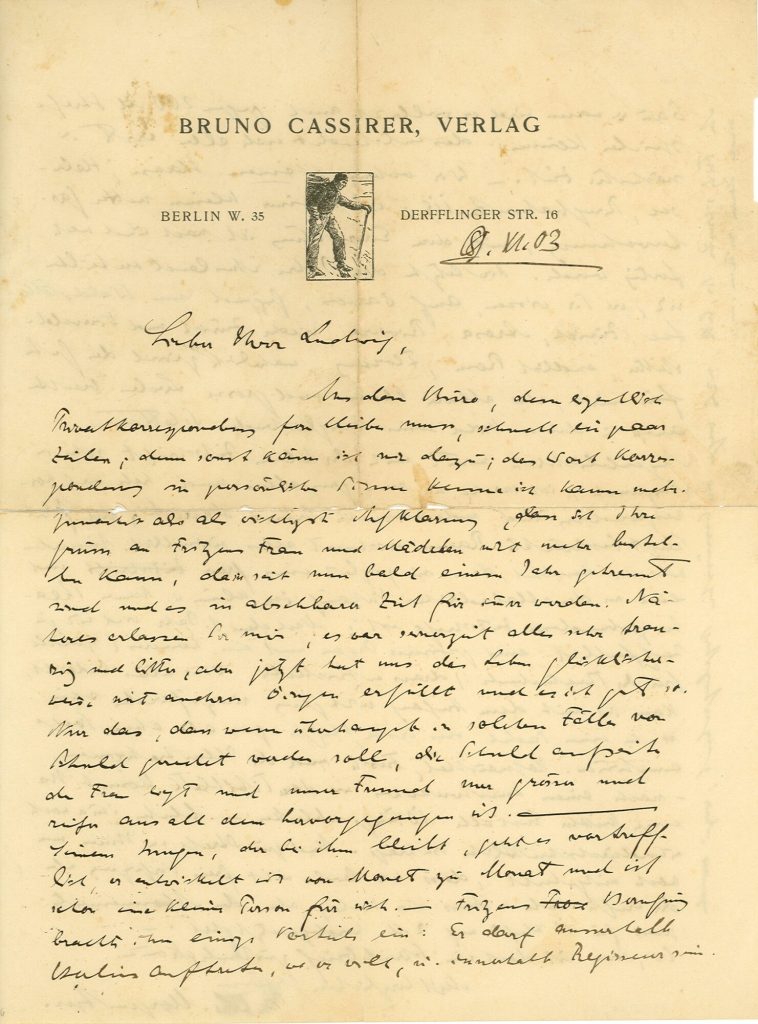 BRUNO CASSIRER, VERLAG
BERLIN W. 35
DERFFLINGER STR. 16
VI. 03
Lieber Herr Ludwig,
Aus dem Büro, dem eigentlich
Privatkorrespondenz fern bleiben muss, schnell ein paar
Zeilen; denn sonst käme ich nie dazu; das Wort Korres-
pondenz im persönlichen Sinne kenne ich kaum mehr.
als als wichtigste Aufklärung, dass ich Ihre
Grüsse an Fritzens Frau und Mädelchen nicht mehr bestel-
len kann, da seit nun bald einem Jahr getrennt
sind und es in absehbarer Zeit für immer werden. Nä-
heres erlassen Sie mir, es war seinerzeit alles sehr trau-
rig und bitter, aber jetzt hat uns das Leben glücklicher-
weise mit anderen Dingen erfüllt und es ist gut so.
Nur das, dass wenn überhaupt in solchen Fällen von
Schuld geredet werden soll, die Schuld auf seiten
der Frau liegt und unser Freund nur grösser und
reifer aus all dem hervorgegangen ist. —
Seinem Jungen, der bei ihm bleibt, geht es vortreff-
lich, er entwickelt sich von Monat zu Monat und ist
schon eine kleine Person für sich. — Fritzens Berufung
brachte ihm einige Vorteile ein: Er darf ausserhalb
Berlins auftreten, wo er will, u. innerhalb Regisseur sein.